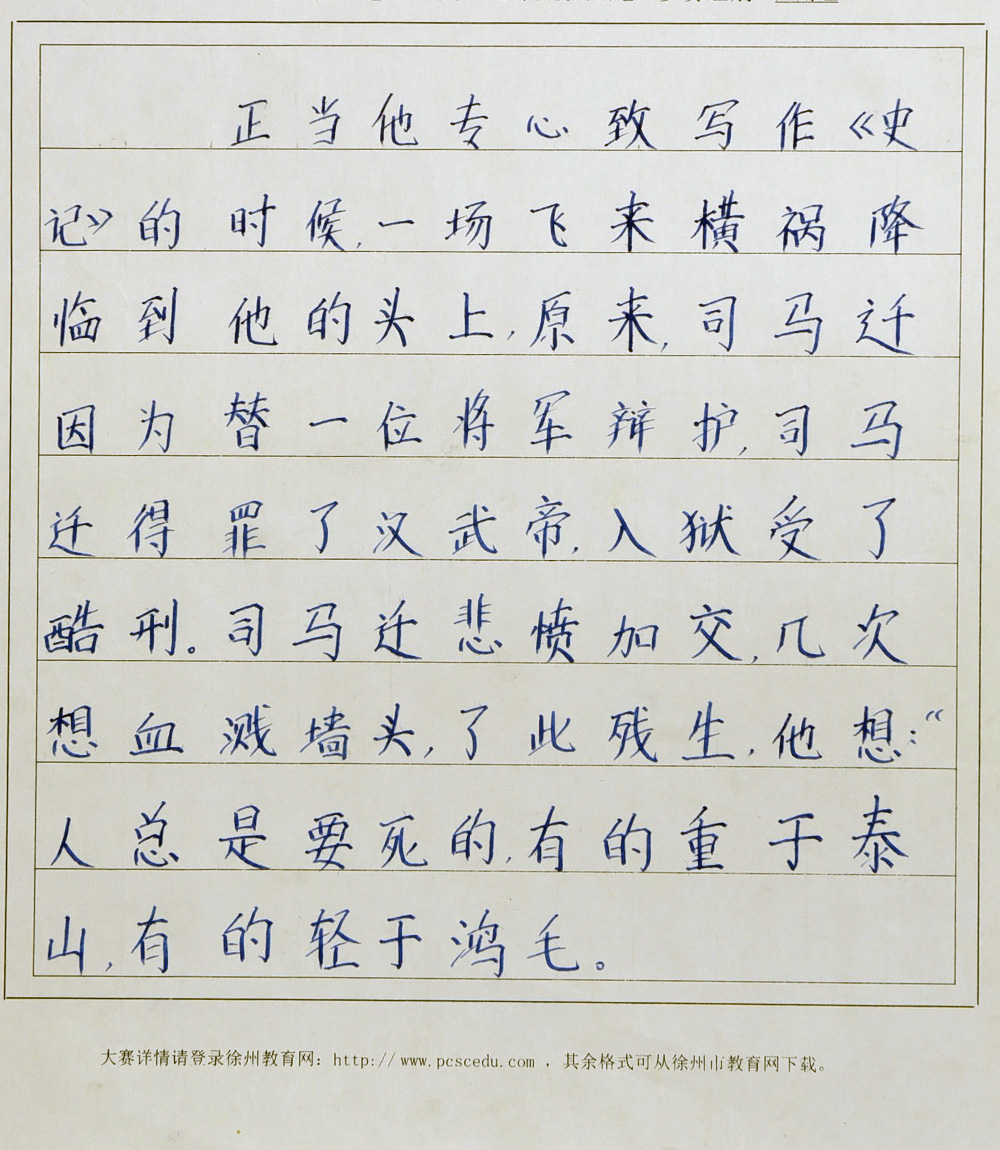 正当他专心致写作《史
记》的时候,一场飞来横祸降
临到他的头上,原来,司马迁
因为替一位将军辩护,司马
迁得罪了汉武帝,入狱受了
酷刑。司马迁悲愤加交,几次
想血溅墙头,了此残生,他想:“
人总是要死的,有的重于泰
山,有的轻于鸿毛。
大赛详情请登录徐州教育网:http://www.pcscedu.com ,其余格式可从徐州市教育网下载。